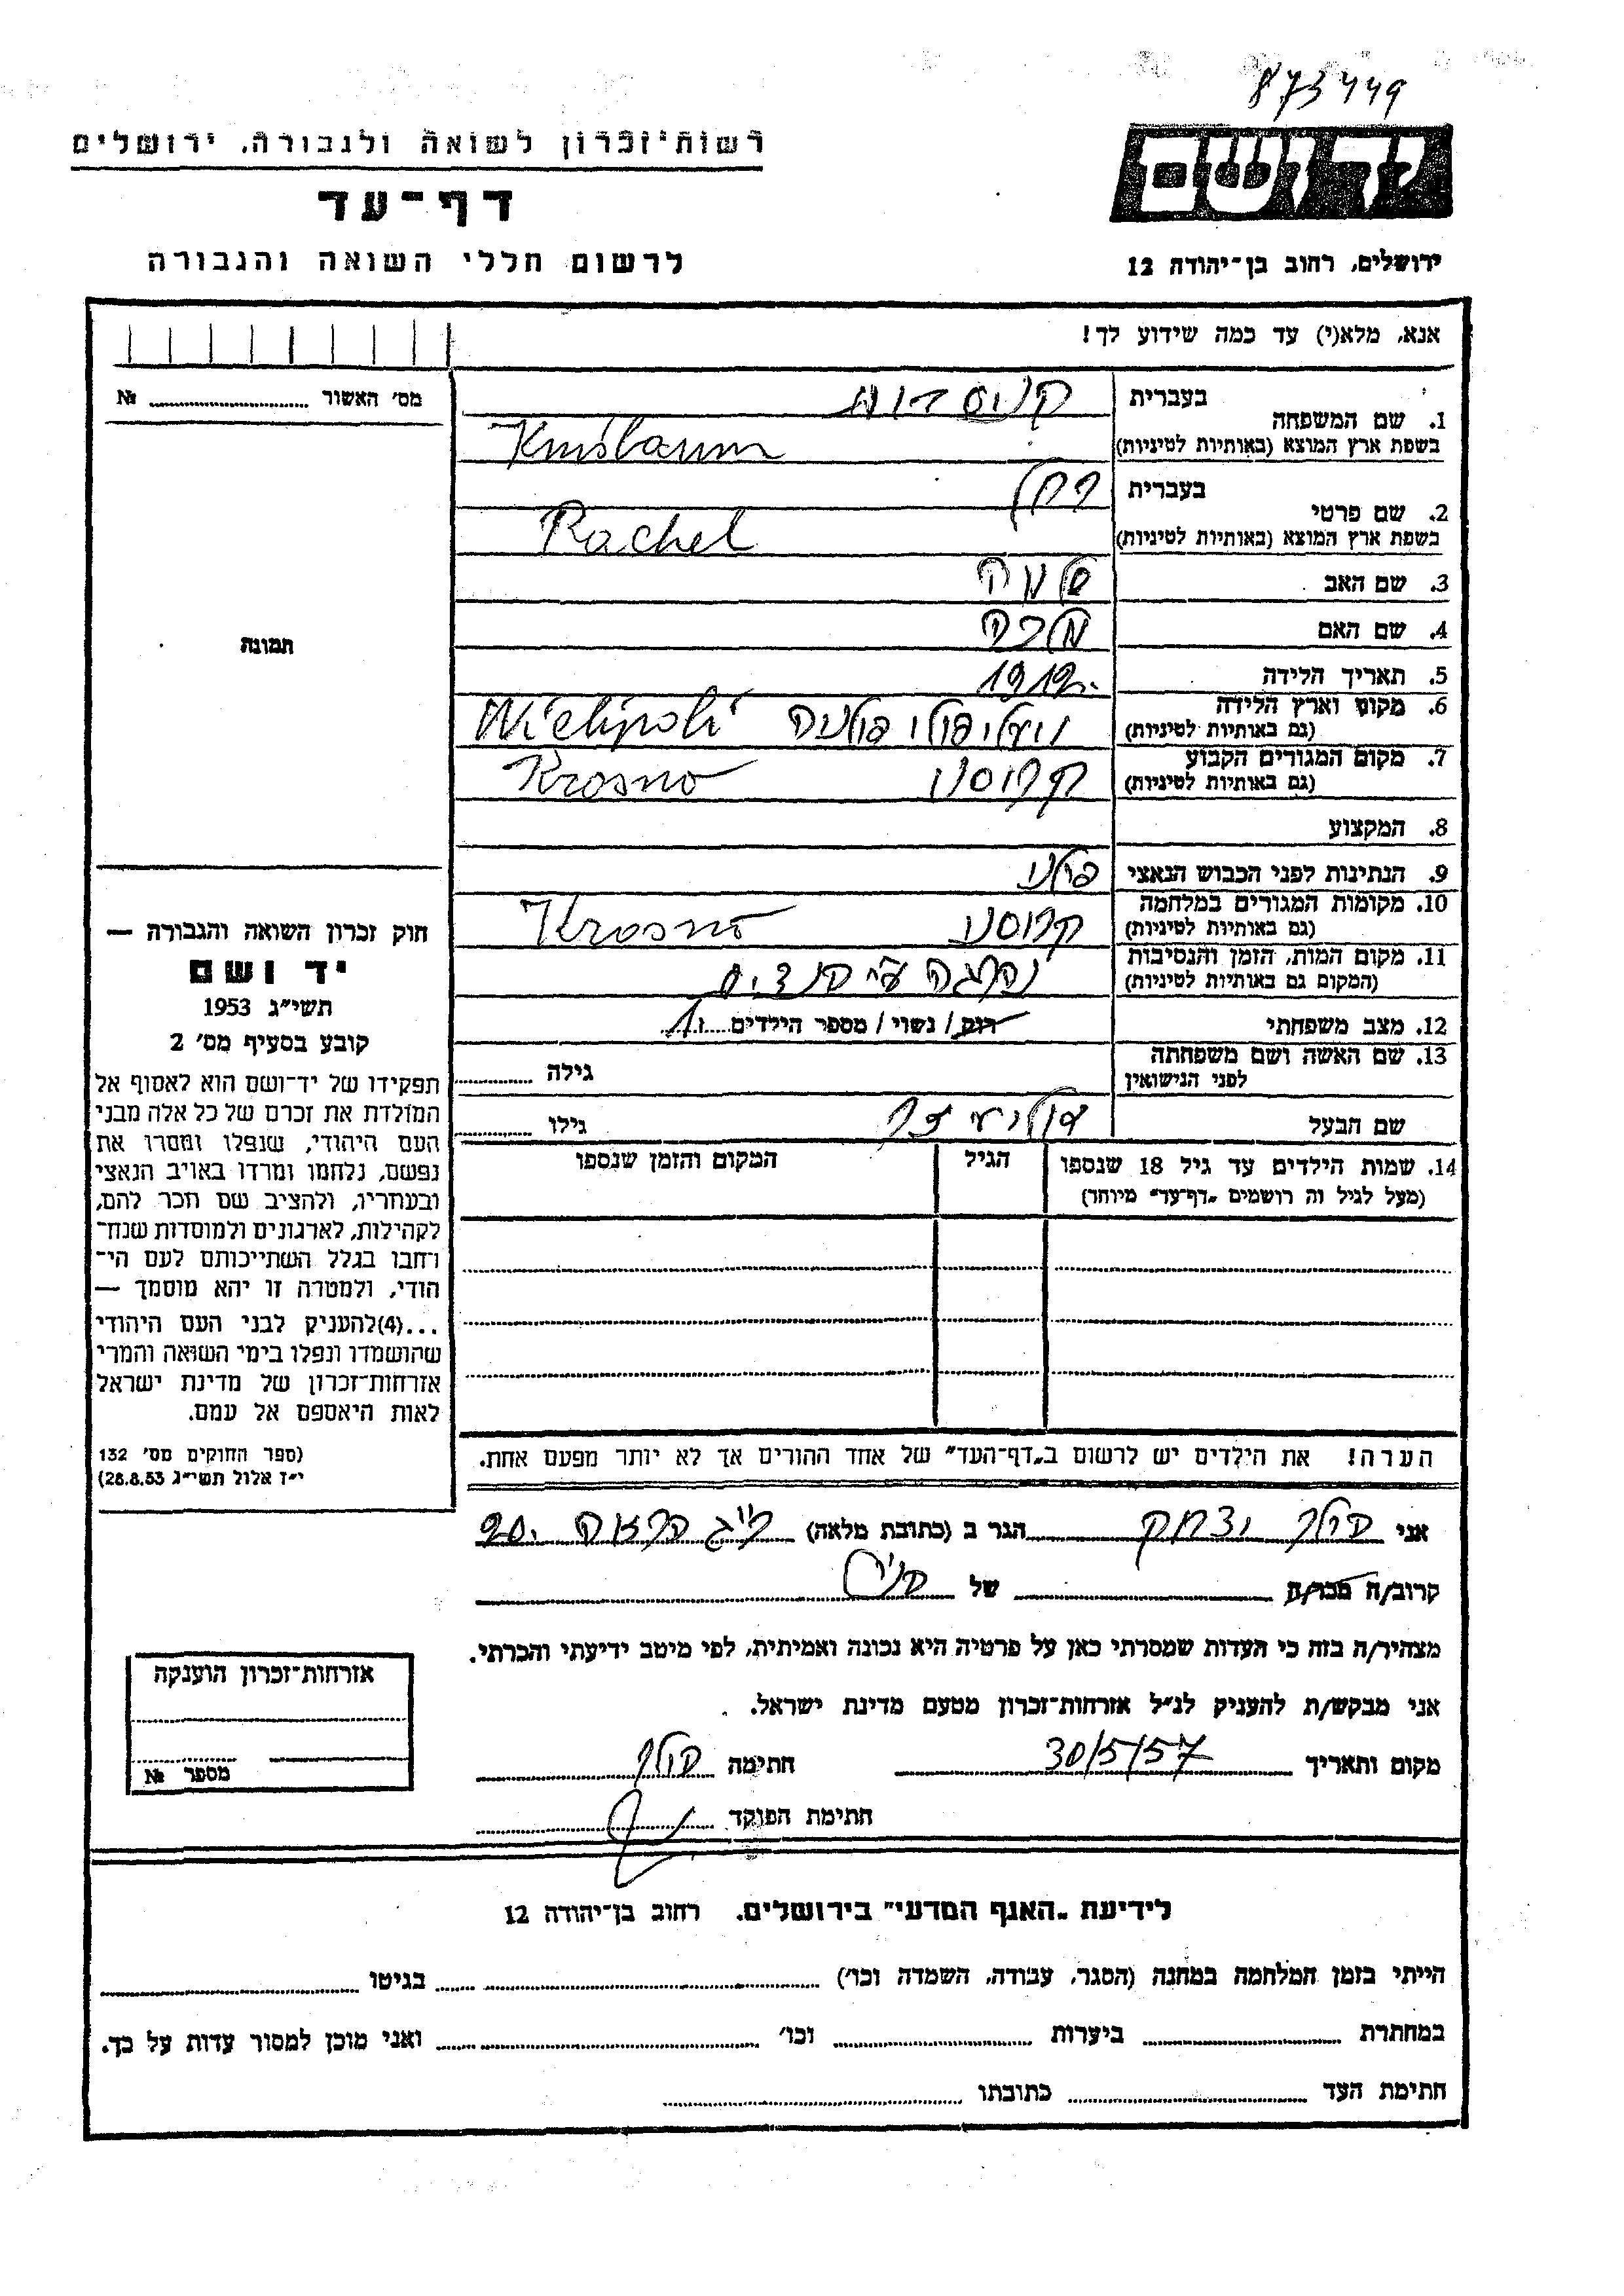 873449
רשות־זכרון לשואה ולגבורה, ירושלים
יד ושם
דף־עד
לרשום חללי השואה והגבורה
ירושלים, רחוב בן־יהודה 12
אנא, מלא(י) עד כמה שידוע לך!
מס׳ האשור № 
בעברית
1. שם המשפחה
בשפת ארץ המוצא (באותיות לטיניות)
בעברית
רחל
2. שם פרטי
בשפת ארץ המוצא (באותיות לטיניות) Rachel
3. שם האב שלמה
4. שם האם
תמונה
5. תאריך הלידה 1912.
6. מקום וארץ הלידה
(גם באותיות לטיניות) פולניה
7. מקום המגורים הקבוע
(גם באותיות לטיניות) קרוסנו Krosno
8. המקצוע
9. הנתינות לפני הכבוש הנאצי
10. מקומות המגורים במלחמה
(גם באותיות לטיניות) קרוסנו Krosno
11. מקום המות, הזמן והנסיבות
(המקום גם באותיות לטיניות) נהרגה ע״י
12. מצב משפחתי רוק/ נשוי/ מספר הילדים 1
13. שם האשה ושם משפחתה
לפני הנישואין גילה
שם הבעל גילו
14. שמות הילדים עד גיל 18 שנספו הגיל המקום והזמן שנספו
(מעל לגיל זה רושמים „דף־עד״ מיוחד)
חוק זכרון השואה והגבורה —
יד ושם
תשי״ג 1953
קובע בסעיף מס׳ 2
תפקידו של יד־ושם הוא לאסוף אל
המולדת את זכרם של כל אלה מבני
העם היהודי, שנפלו ומסרו את
נפשם, נלחמו ומרדו באויב הנאצי
ובעוזריו, ולהציב שם וזכר להם,
לקהילות, לארגונים ולמוסדות שנח־
רבו בגלל השתייכותם לעם הי־
הודי, ולמטרה זו יהא מוסמך —
...(4)להעניק לבני העם היהודי
שהושמדו ונפלו בימי השואה והמרי
אזרחות־זכרון של מדינת ישראל
לאות היאספם אל עמם.
(ספר החוקים מס׳ 132
י״ז אלול תשי״ג 28.8.53)
הערה! את הילדים יש לרשום ב„דף־העד״ של אחד ההורים אך לא יותר מפעם אחת.
אני יצחק הגר ב (כתובת מלאה)
קרוב/ה מכר/ה של
מצהיר/ה בזה כי העדות שמסרתי כאן על פרטיה היא נכונה ואמיתית, לפי מיטב ידיעתי והכרתי.
אני מבקש/ת להעניק לנ״ל אזרחות־זכרון מטעם מדינת ישראל.
מקום ותאריך 30/5/57 חתימה
חתימת הפוקד
אזרחות־זכרון הוענקה
מספר №
לידיעת „האגף המדעי״ בירושלים, רחוב בן־יהודה 12
הייתי בזמן המלחמה במחנה (הסגר, עבודה, השמדה וכו׳) בגיטו
במחתרת ביערות וכו׳ ואני מוכן למסור עדות על כך.
חתימת העד כתובתו